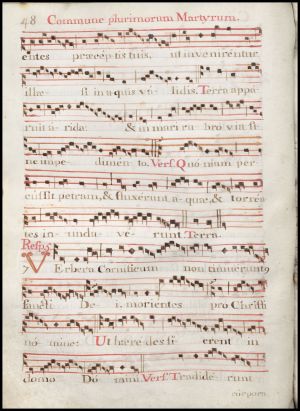 48 Commune plurimorum Martyrum.
entes præcep tis tuis, ut inve nirentur
illæ si in aquis va lidis. Terra appa
ruit a rida: & in mari ru bro via si
ne impe dimen to. Vers. Quo niam per
cussit petram, & fluxerunt a quæ, & torren
tes in unda ve runt. Terra.
Resp.
7 VErbera Carnificum non timuerunt
sancti De i, morientes pro Christi
no mine: Ut hære des fi erent in
domo Do mini. Vers. Tradide runt
corpora